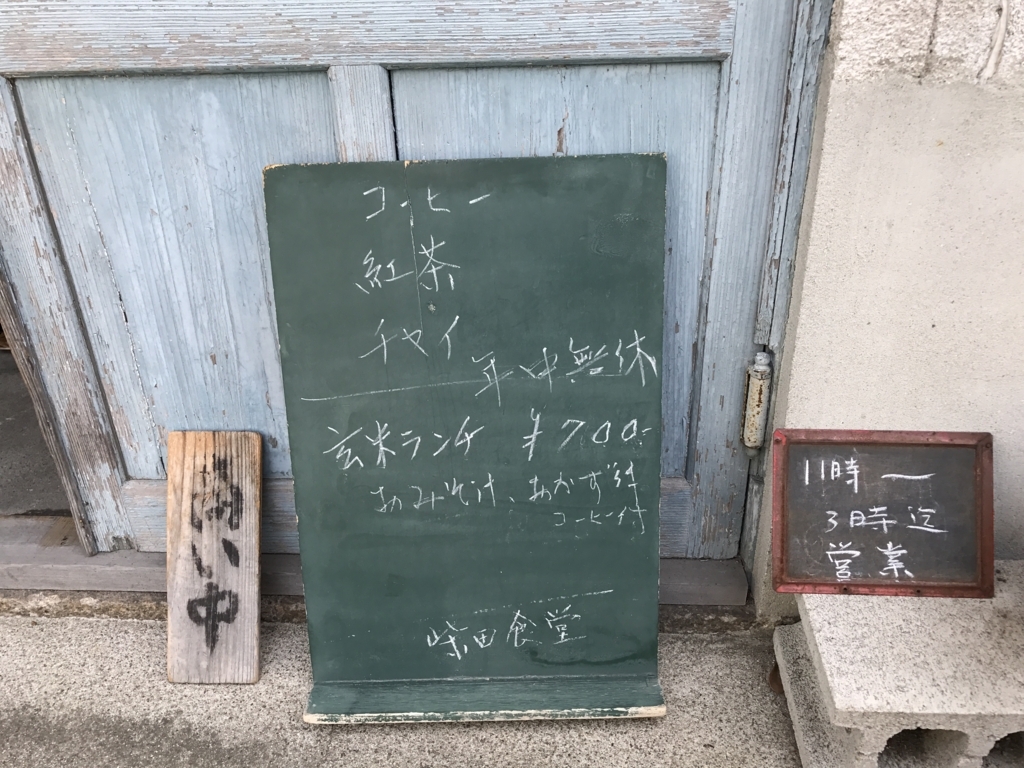 コーヒー
紅茶
チャイ
年中無休
玄米ランチ ¥700-
おみそ汁、おかず付
コーヒー付
柴田食堂
商い中
11時ー
3時迄
営業